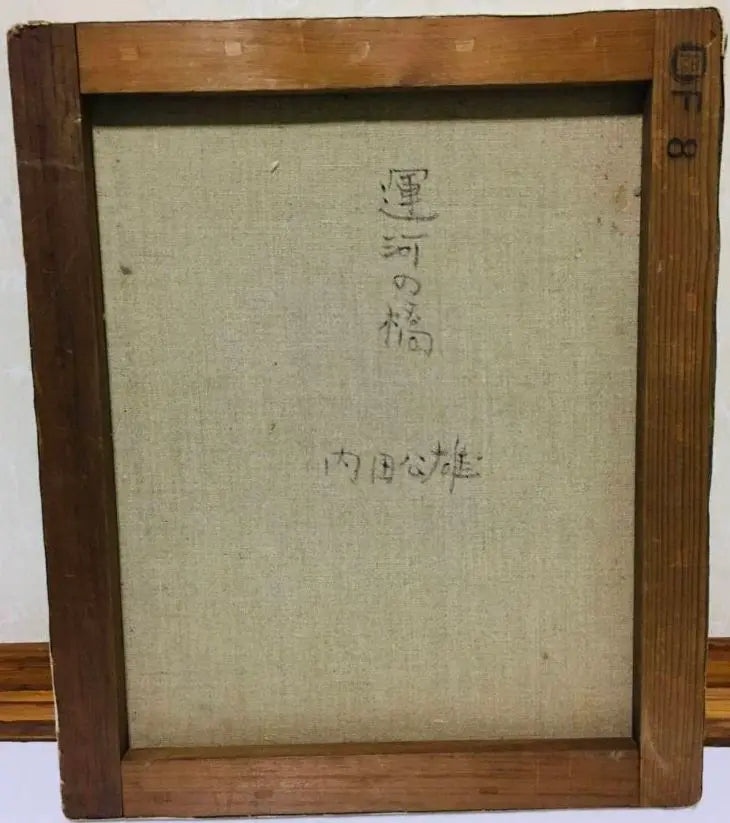 運河の橋
内田公雄
F8